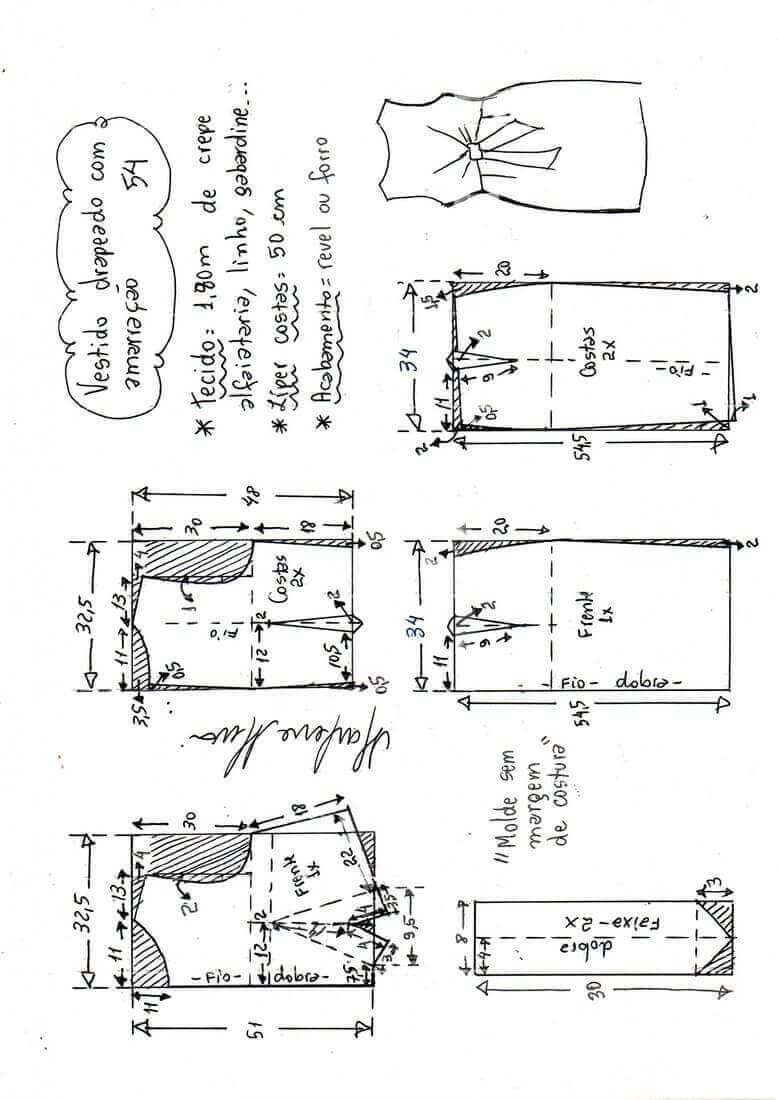 Vestido drapeado com
amarração 54
* Tecido: 1,80m de crepe
alfaiataria, linho, gabardine...
* Zíper costas = 50 cm
* Acabamento = revel ou forro
32,5
11
13
4
11
30
2
18
51
Frente
1x
22
12
2
-Fio- dobra-
4
4
3
3,5
7,5
9,5
32,5
11
13
4
3,5
0,5
1
30
18
48
Costas
2x
Fio
12
2
10,5
2
0,5
0,5
34
11
9
2
2
20
Frente
1x
-Fio- dobra-
54,5
2
34
11
9
2
2
0,5
1,5
20
Costas
2x
-Fio-
54,5
1
1
2
"Molde sem
margem
de costura"
8
4
dobra
Faixa-2x
3
30